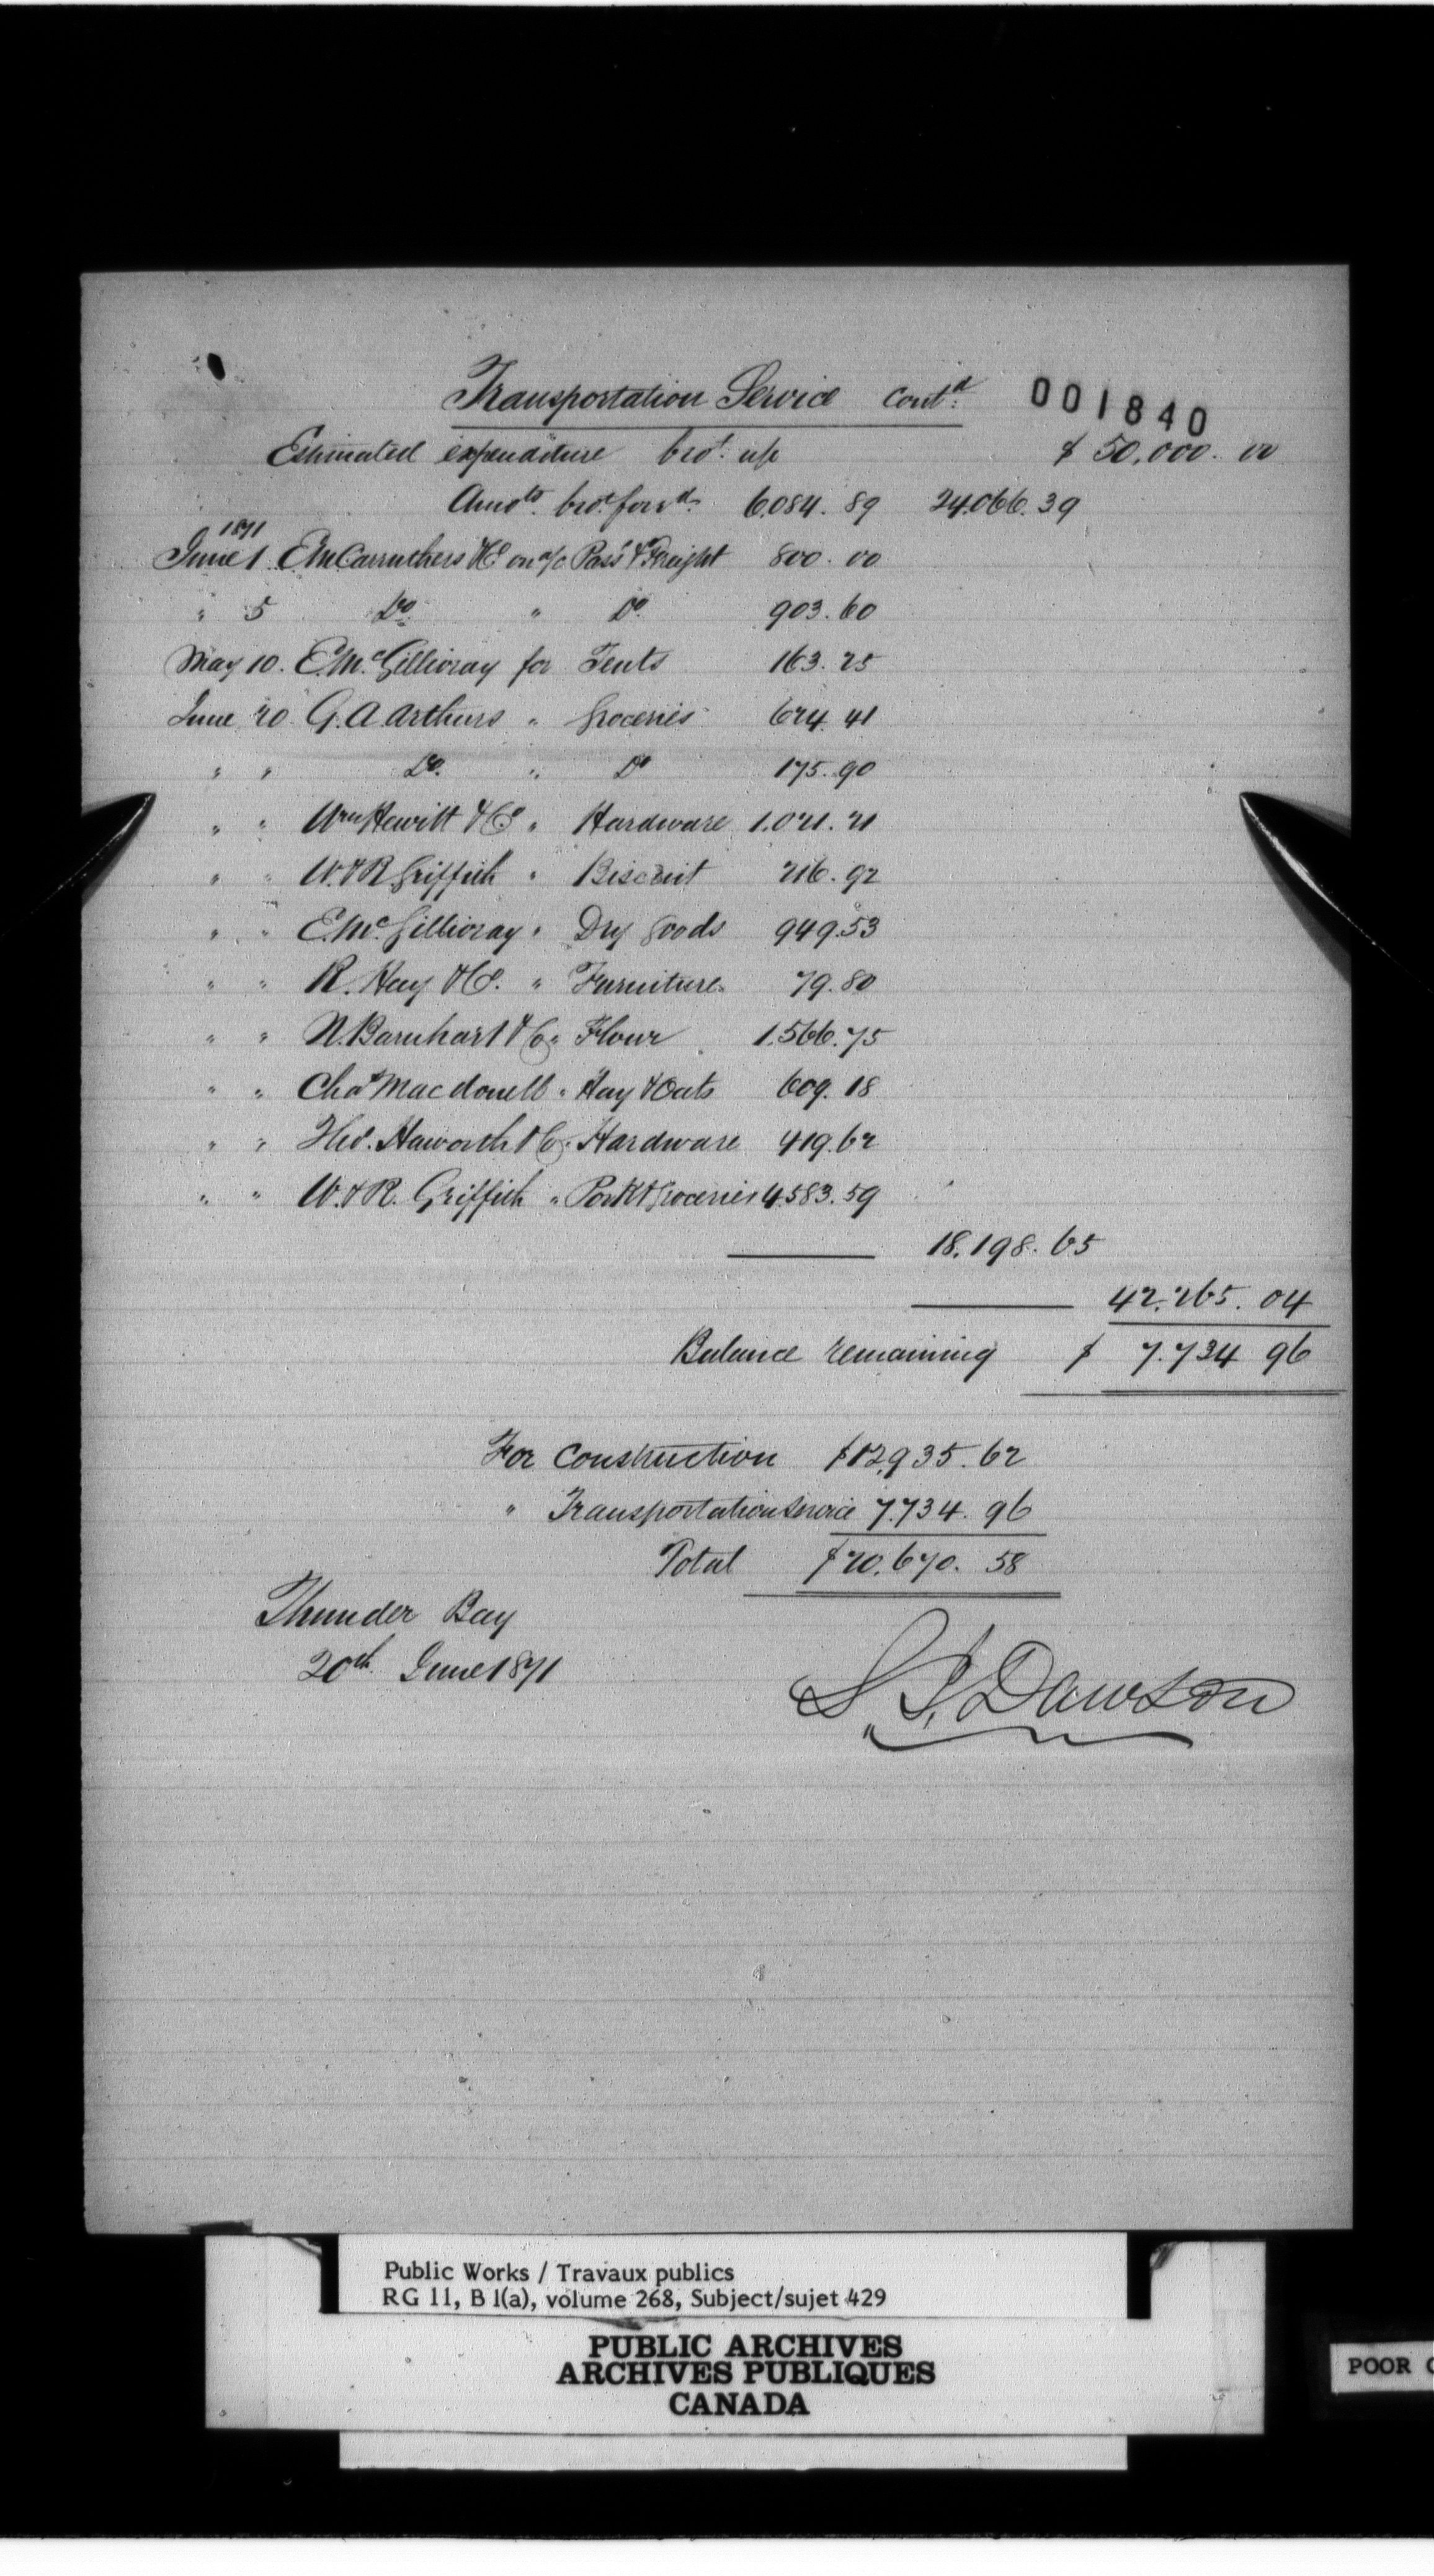 Transportation Service contd
001840
Estimated expenditure brot. up $ 50,000. 00
Amots. brot. forwd. 6,084. 89 24,066. 39
1871
June 1 E.M Carruthers & Co on a/c Pass & Freight 800. 00
" 5 Do. " Do. 903. 60
May 10. E. McGillivray for Tents 163. 25
June 20 G. A Arthurs " Groceries 624. 41
" " Do. " Do 175. 90
" " Wm Hewitt & Co " Hardware 1.021. 21
" " W. & R Griffith " Biscuit 216. 92
" " E. McGillivray " Dry Goods 949.53
" " R. Hay & Co. " Furniture 79. 80
" " N. Barnhart & Co " Flour 1.566. 75
" " Chas Macdonell " Hay & Oats 609. 18
" " Thos. Haworth & Co " Hardware 419. 62
" " W. & R. Griffith " Pork & Groceries 4.583. 59
18. 198. 65
42. 265. 04
Balance remaining $ 7. 734 96
For Construction $12,935. 62
" Transportation Service 7.734. 96
Total $20. 670. 58
Thunder Bay
20th June 1871
S. J. Dawson
Public Works / Travaux publics
RG 11, B 1(a), volume 268, Subject/sujet 429
PUBLIC ARCHIVES
ARCHIVES PUBLIQUES
CANADA
POOR